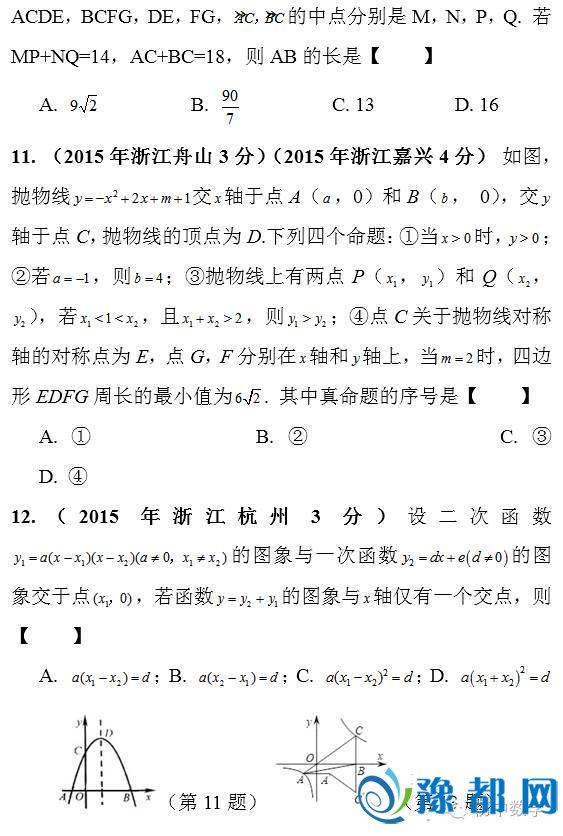 ACDE，BCFG，DE，FG，AC，BC的中点分别是 M，N，P，Q. 若
MP+NQ=14，AC+BC=18，则 AB 的长是【 】
A. 9√2 B. 90/7 C. 13 D. 16
11. （2015 年浙江舟山 3 分）（2015 年浙江嘉兴 4 分） 如图，
抛物线 y=-x²+2x+m+1 交 x 轴于点 A（a，0）和 B（b， 0），交 y
轴于点 C，抛物线的顶点为 D.下列四个命题：①当 x>0 时，y>0；
②若 a=-1，则 b=4；③抛物线上有两点 P（x₁，y₁）和 Q（x₂，
y₂），若 x₁<1<x₂，且 x₁+x₂>2，则 y₁>y₂；④点 C 关于抛物线对称
轴的对称点为 E，点 G，F 分别在 x 轴和 y 轴上，当 m=2 时，四边
形 EDFG 周长的最小值为 6√2. 其中真命题的序号是【 】
A. ① B. ② C. ③
D. ④
12. （2015 年浙江杭州 3 分）设二次函数
y₁=a(x-x₁)(x-x₂)(a≠0，x₁≠x₂) 的图象与一次函数 y₂=dx+e(d≠0) 的图
象交于点(x₁，0)，若函数 y=y₂+y₁ 的图象与 x 轴仅有一个交点，则
【 】
A. a(x₁-x₂)=d；B. a(x₂-x₁)=d；C. a(x₁-x₂)²=d；D. a(x₁+x₂)²=d
y D C A O B x
y C O x A A B C
（第 11 题） （第 题）
豫都网
初中数学